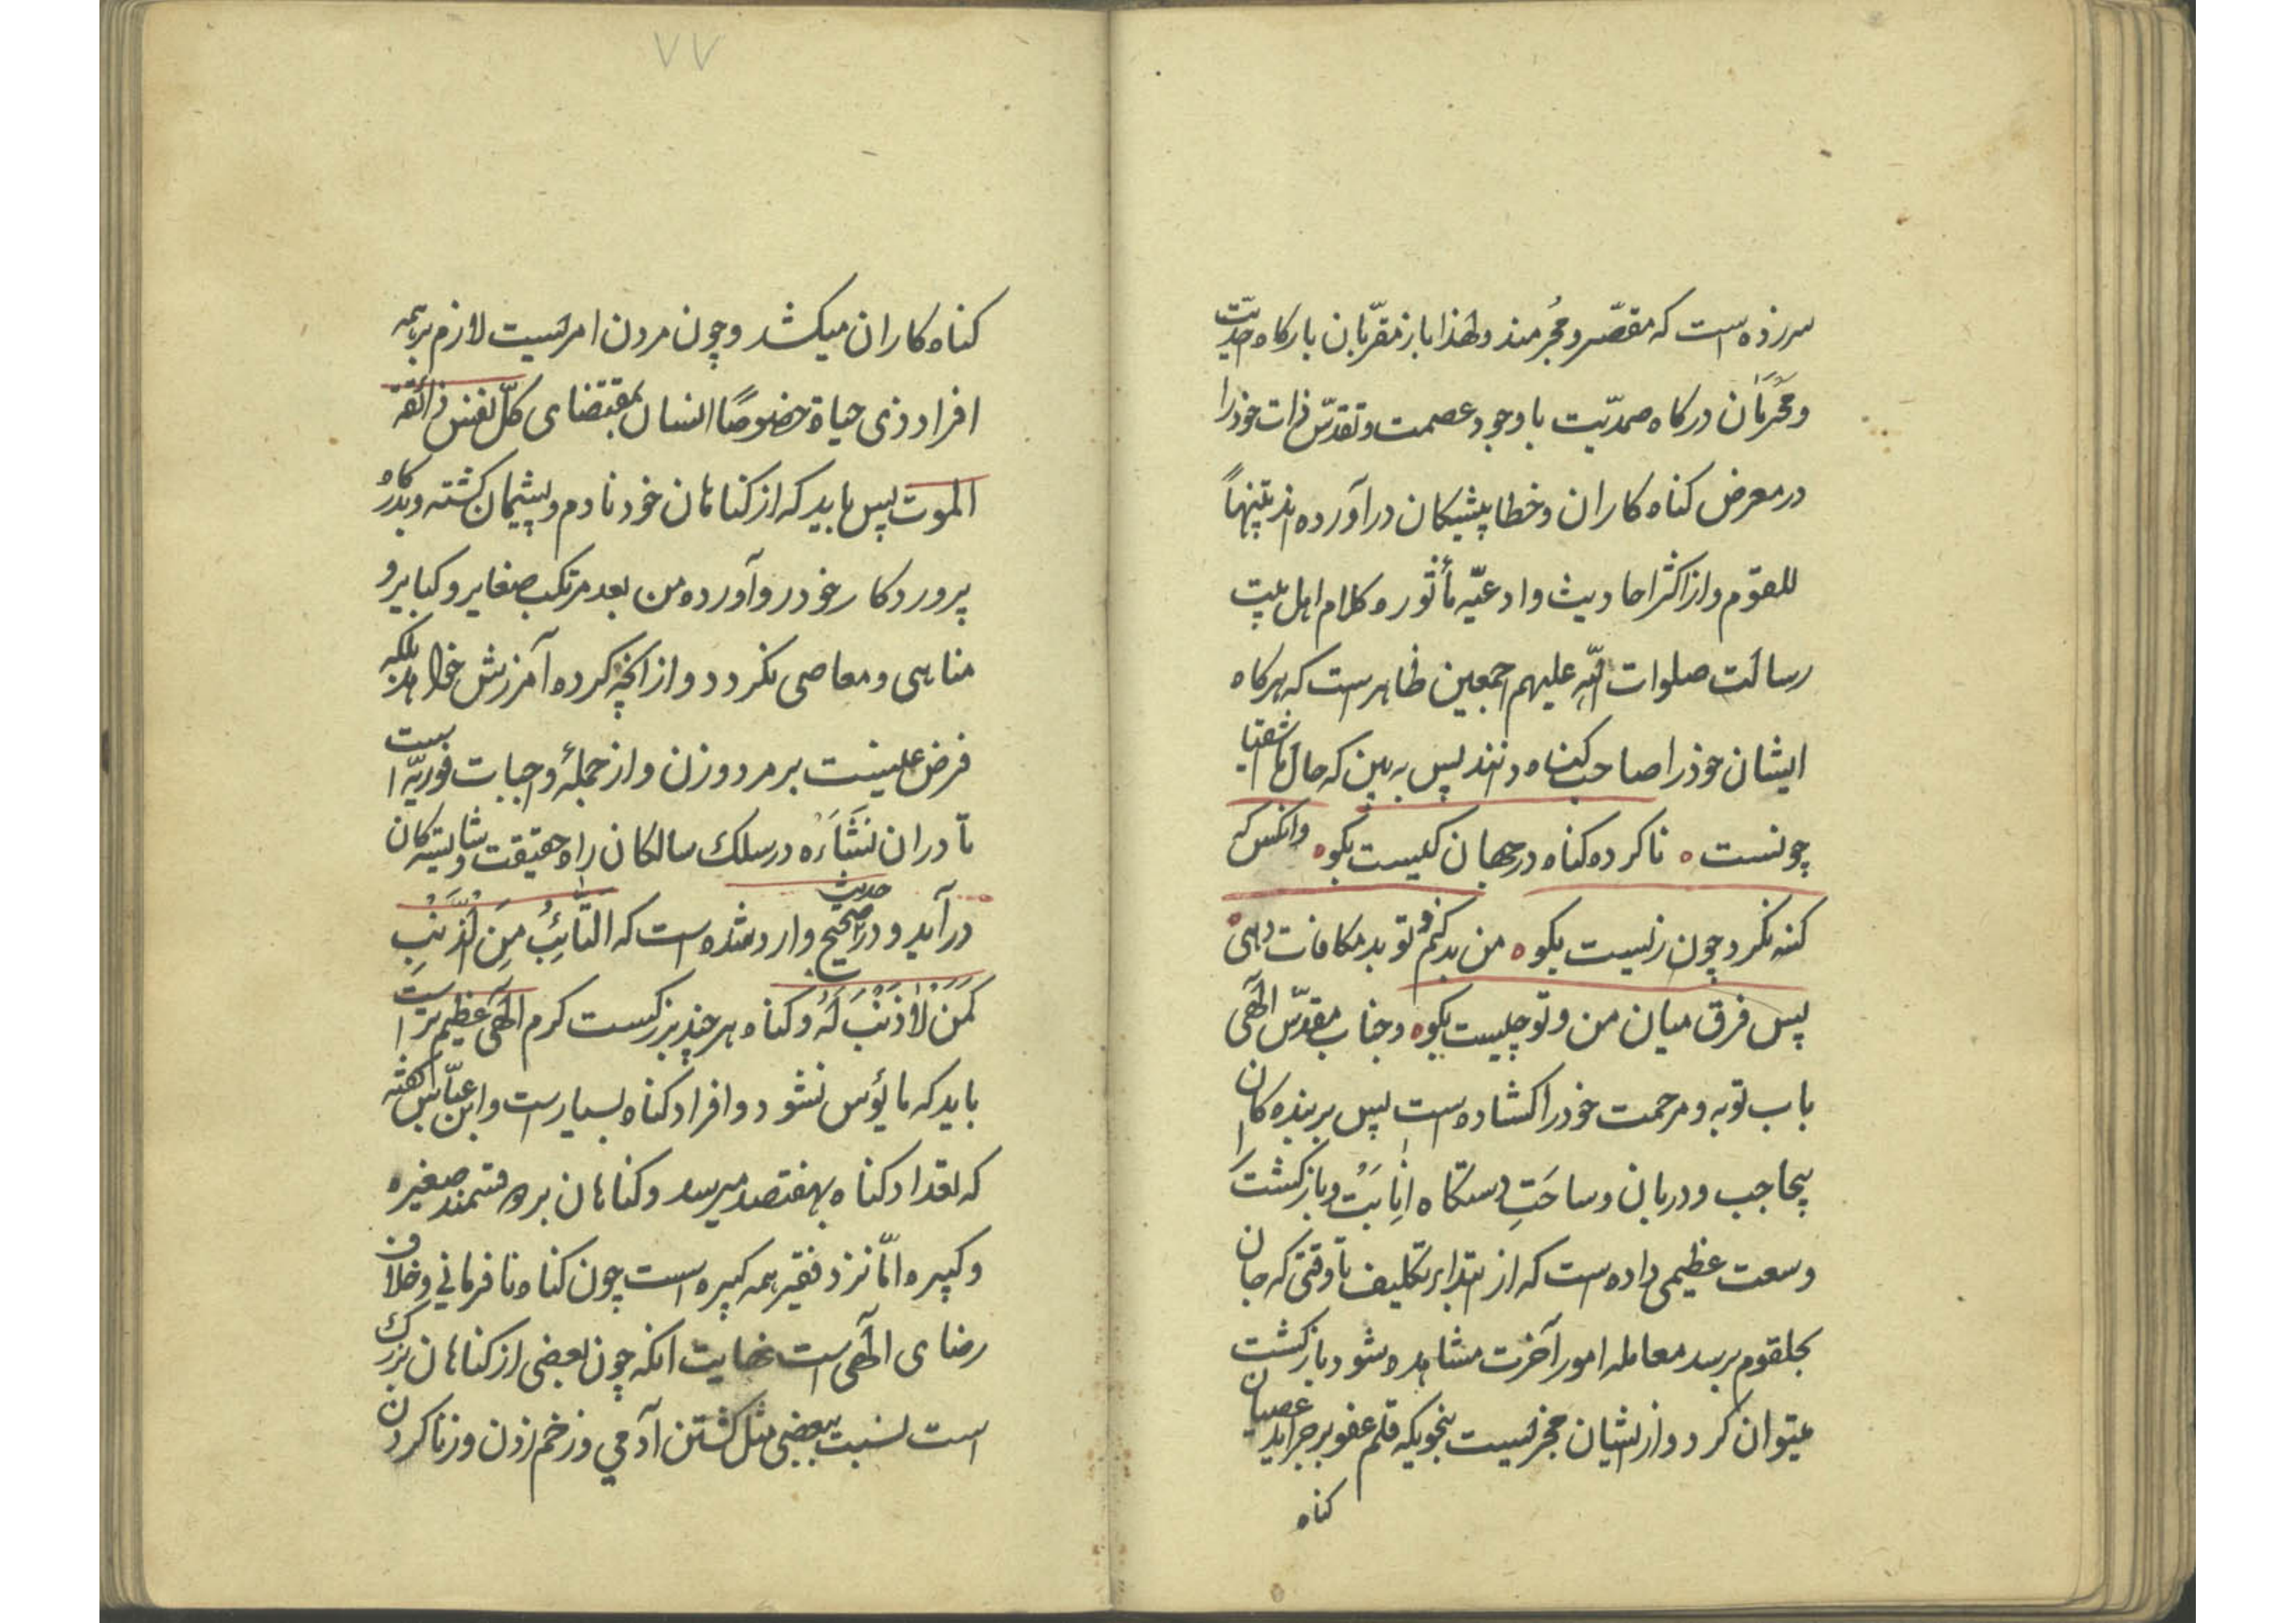 سرزده است که مقصّر و مُجرمند ولهذا باز مقرّبان بارکاه احدیّت
و مَحْرَمان درکاه صمدیّت با وجود عصمت و تقدّس ذات خود را
در معرض کناه کاران و خطا پیشکان در آورده اند تنبّهاً
للقوم و از اکثر احادیث و ادعیّه مأثوره کلام اهل بیت
رسالت صلوات اللّه علیهم اجمعین ظاهر است که هرکاه
ایشان خود را صاحب کناه دانند پس به بین که حال ما اشقیا
چونست ه ناکرده کناه در جهان کیست بکو ه وانکس که
کنه نکرد چون زیست بکو ه من بد کنم و تو بد مکافات دهی ه
پس فرق میان من و تو چیست بکو ه و جناب مقدّس الٓهی
باب توبه و مرحمت خود را کشاده است پس بر بنده کان
بیحاجب و دربان و ساحَتِ دستکاه اِنابَتْ و بازکشت را
وسعت عظیمی داده است که از ابتداء تکلیف تا وقتی که جان
بحلقوم برسد معامله امور آخرت مشاهده شود بازکشت
میتوان کرد و از ایشان مجزیست بنحویکه قلم عفو بر جراید عصیان
کناه
٧٧
کناه کاران میکشد و چون مردن امریست لازم بر همه
افراد ذی حیاة خصوصًا انسان بمقتضای کلّ نفس ذائقة
الموت پس باید که از کناهان خود نادم و پشیمان کشته و بدرکاه
پروردکار خود رو آورده من بعد مرتکب صغایر و کبایر و
مناهی و معاصی نکردد و از انچه کرده آمرزش خواهد بلکه
فرض عینیست بر مرد و زن و از جملهٔ واجبات فوریّه است
تا در ان نَشَأَه در سلک سالکان راه حقیقت و شایسته کان
در آید و در حدیث صحیح وارد شده است که التَّائِبُ مِنَ الذَّنْبِ
کَمَنْ لاٰ ذَنْبَ لَهُ و کناه هر چند بزرکست کرم الٓهی عظیم تر است
باید که مایؤس نشود و افراد کناه بسیار است و ابن عبّاس کفته
که تعداد کناه بهفتصد میرسد و کناهان بر دو قسمند صغیره
و کبیره امّا نزد فقیر همه کبیره است چون کناه نافرمانی و خلاف
رضای الٓهی است نهایت انکه چون بعضی از کناهان بزرک
است نسبت ببعضی مثل کشتن آدمی و زخم زدن و زنا کردن